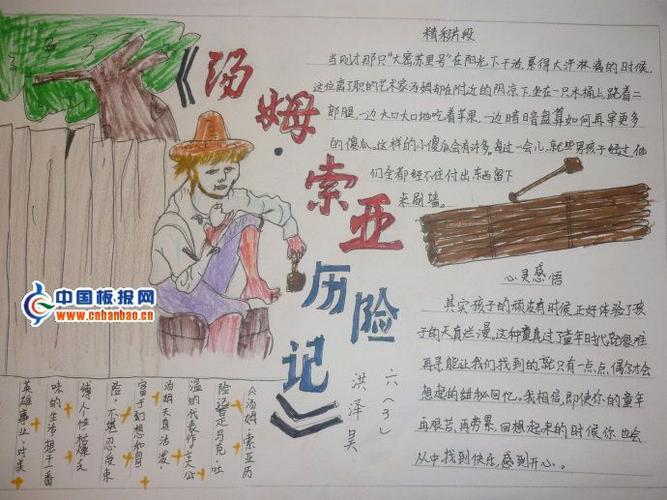 《汤姆·索亚历险记》
六(3)
洪泽昊
精彩片段
当刚才那只"大密苏里号"在阳光下干活,累得大汗淋漓的时候,
这位离了职的艺术家汤姆却在附近的阴凉下坐在一只木桶上,跷着二
郎腿,一边大口大口地吃着苹果,一边暗暗盘算如何再宰更多
的傻瓜。这样的小傻瓜会有许多。每过一会儿,就些男孩子经过,他
们全都经不住付出东西留下
来刷墙。
心灵感悟
其实孩子的顽皮有时候正好体验了孩
子的天真烂漫。这种童真过了童年时代就很难
再寻能让我们找到的就只有一点点,偶尔才会
想起的甜秘回忆。我相信,即使你的童年
再艰苦,再劳累,回想起来的时候你也会
从中找到快乐,感到开心。
《汤姆·索亚历
险记》是马克·吐
温的代表作,主人公
汤姆天真活泼、
富于幻想和冒
险,不堪忍受束
缚人性枯燥乏
味的生活,想干一番
英雄事业
中国板报网
www.cnbanbao.cn